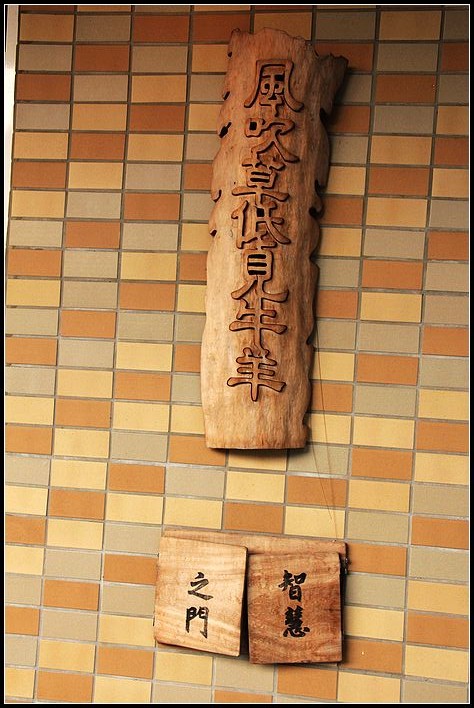 風吹草低見牛羊
智慧
之門